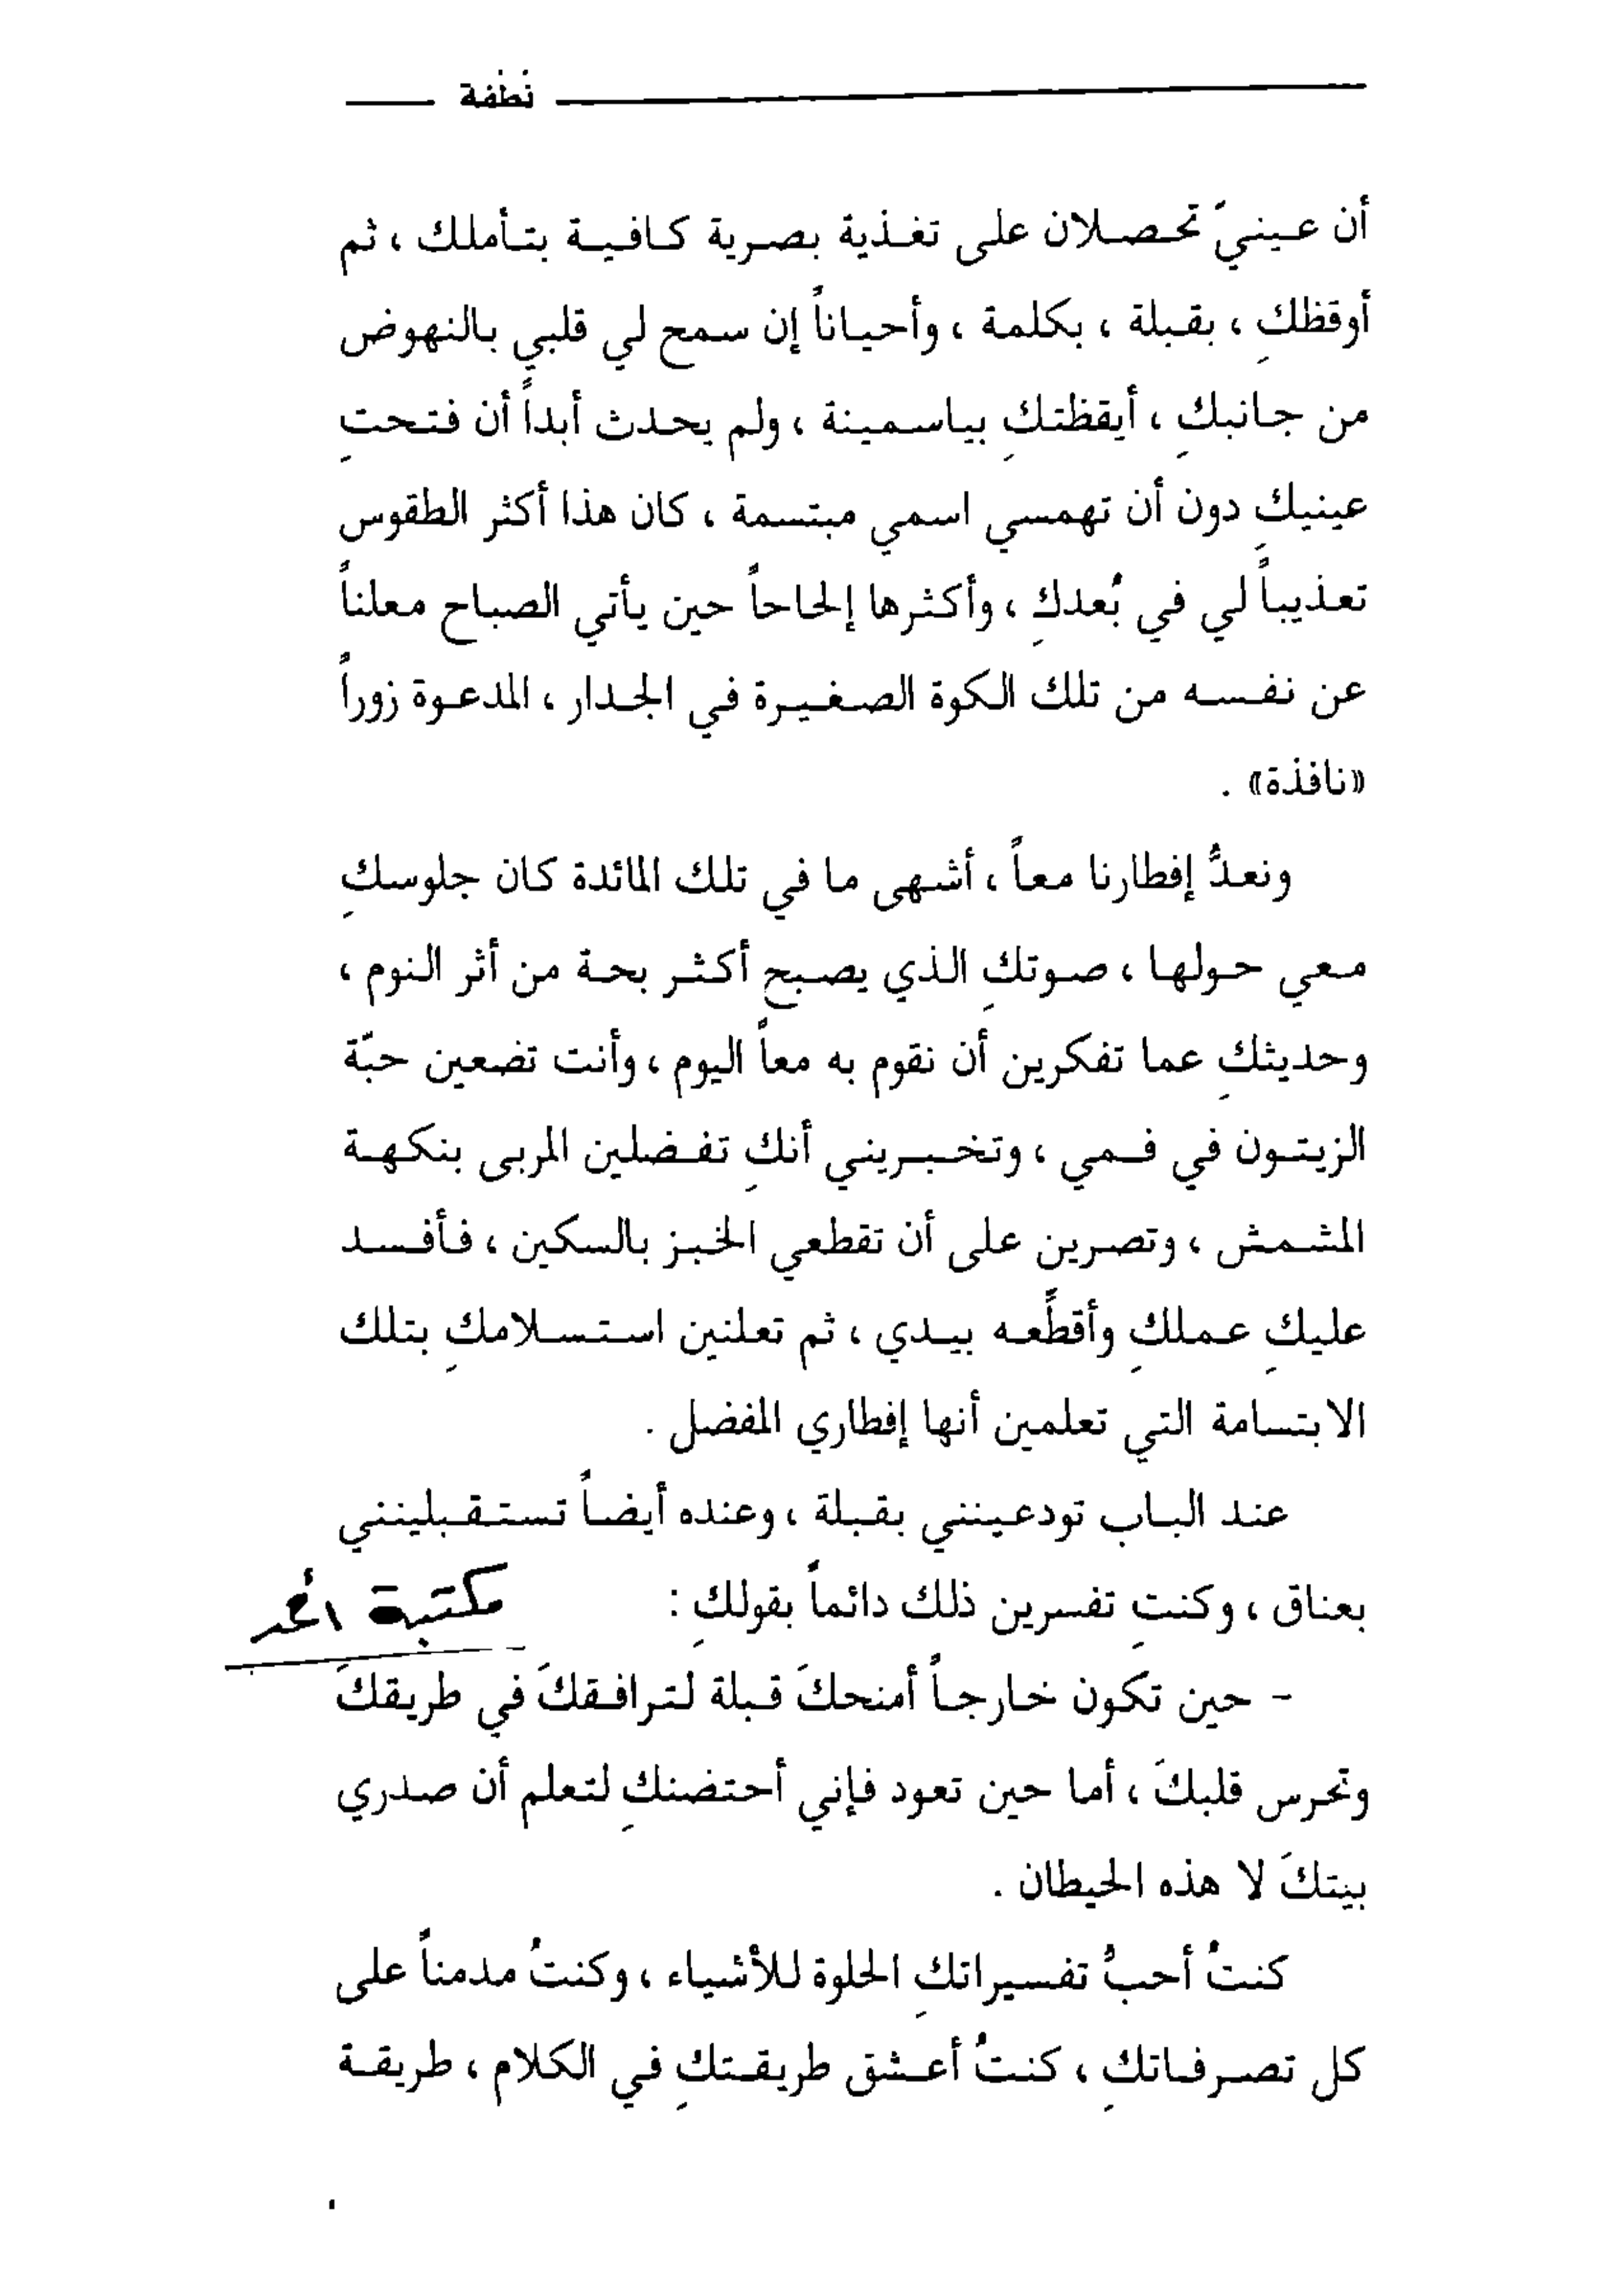 نطفة
أن عينيَ تحصلان على تغذية بصرية كافية بتأملك ، ثم
أوقظكِ ، بقبلة ، بكلمة ، وأحياناً إن سمح لي قلبي بالنهوض
من جانبكِ ، أيقظتكِ بياسمينة ، ولم يحدث أبداً أن فتحتِ
عينيكِ دون أن تهمسي اسمي مبتسمة ، كان هذا أكثر الطقوس
تعذيباً لي في بُعدكِ ، وأكثرها إلحاحاً حين يأتي الصباح معلناً
عن نفسه من تلك الكوة الصغيرة في الجدار ، المدعوة زوراً
«نافذة» .
ونعدُّ إفطارنا معاً ، أشهى ما في تلك المائدة كان جلوسكِ
معي حولها ، صوتكِ الذي يصبح أكثر بحة من أثر النوم ،
وحديثكِ عما تفكرين أن نقوم به معاً اليوم ، وأنت تضعين حبّة
الزيتون في فمي ، وتخبريني أنكِ تفضلين المربى بنكهة
المشمش ، وتصرين على أن تقطعي الخبز بالسكين ، فأفسد
عليكِ عملكِ وأقطِّعه بيدي ، ثم تعلنين استسلامكِ بتلك
الابتسامة التي تعلمين أنها إفطاري المفضل .
عند الباب تودعينني بقبلة ، وعنده أيضاً تستقبلينني
بعناق ، وكنتِ تفسرين ذلك دائماً بقولكِ :
مكتبة أحمد
- حين تكون خارجاً أمنحكَ قبلة لترافقكَ في طريقكَ
وتحرس قلبكَ ، أما حين تعود فإني أحتضنكِ لتعلم أن صدري
بيتكَ لا هذه الحيطان .
كنتُ أحبُّ تفسيراتكِ الحلوة للأشياء ، وكنتُ مدمناً على
كل تصرفاتكِ ، كنتُ أعشق طريقتكِ في الكلام ، طريقة